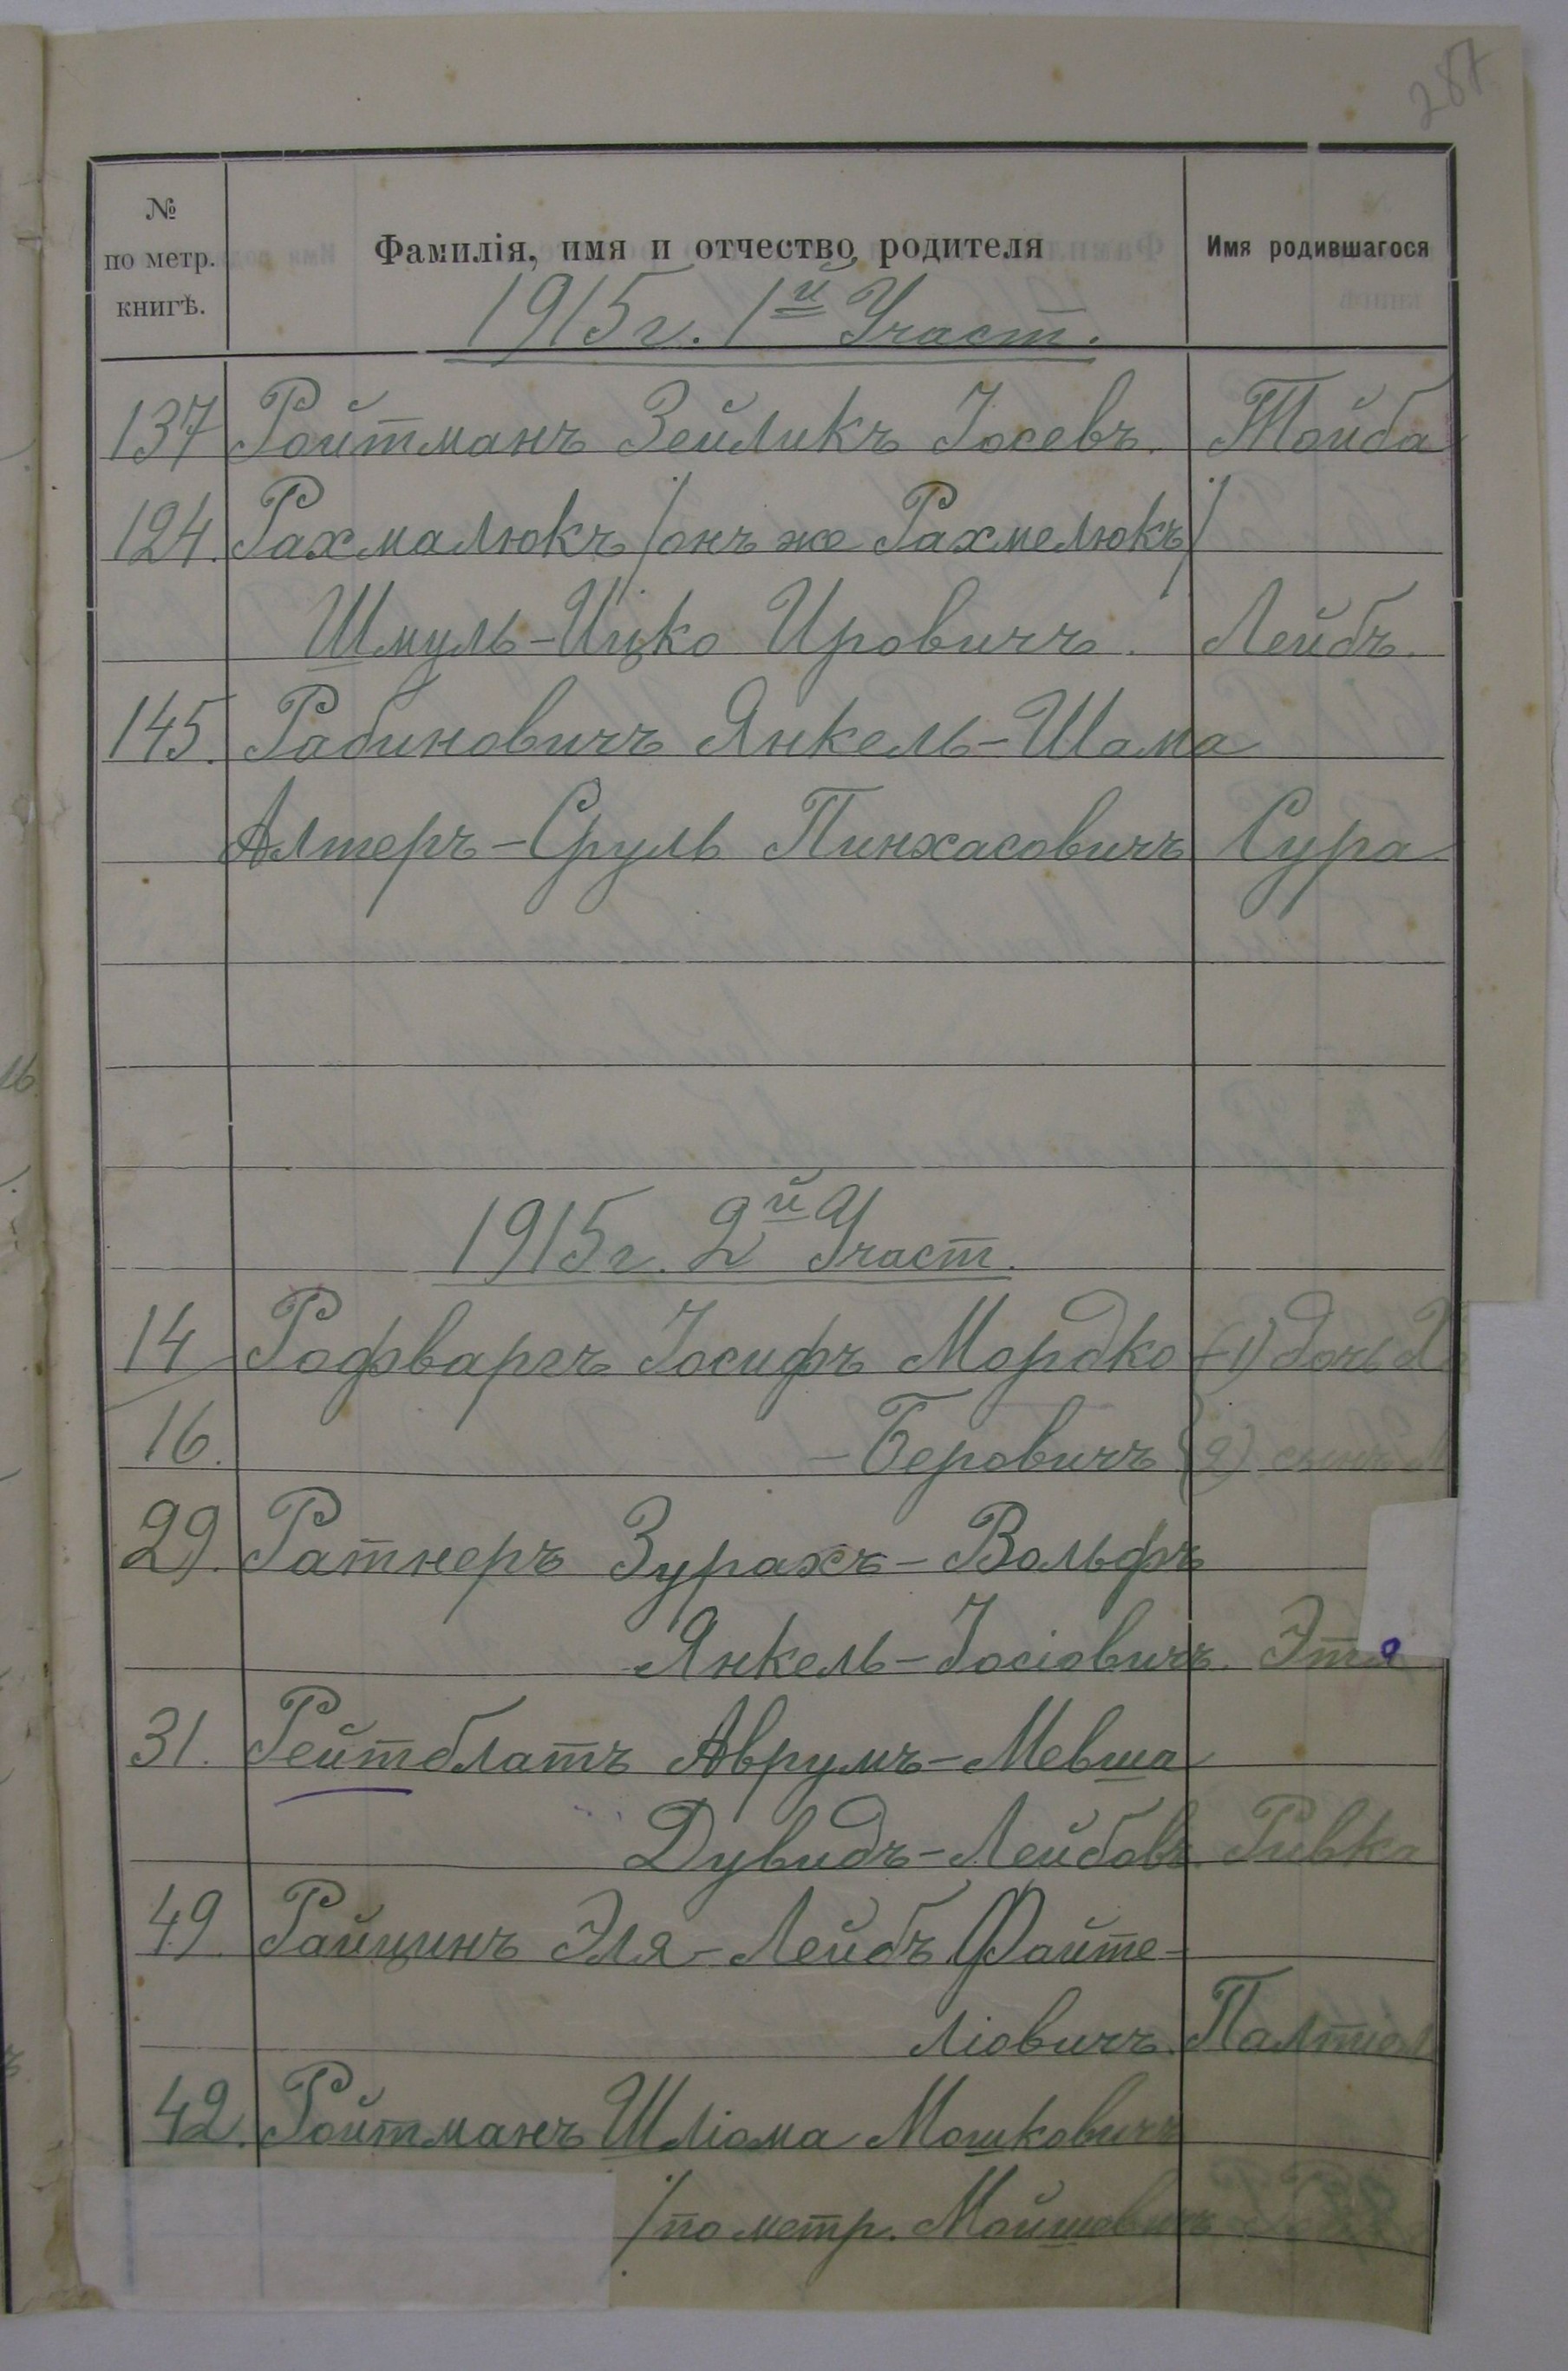 287
№ по метр. книгѣ.
Фамилія, имя и отчество родителя
Имя родившагося
1915 г. 1й Участ.
137 Ройтманъ Зейликъ Іосевъ. Тойба
124. Рахмалюкъ /онъ же Рахмелюкъ/
Шмуль-Ицко Ировичъ. Лейбъ.
145. Рабиновичъ Янкель-Шама
Алтеръ-Сруль Пинхасовичъ Сура
1915 г. 2й Участ.
14 Рофваргъ Іосифъ Мордко 1) дочь
16. -Беровичъ 2) сынъ
29. Ратнеръ Зурахъ-Вольфъ
Янкель-Іосіовичъ. Этя
31. Рейтблатъ Аврумъ-Мевша
Дувидъ-Лейбовъ. Ривка
49. Райцинъ Эля-Лейбъ Файте-
ліовичъ. Палтіел
42. Ройтманъ Шліома Мошковичъ
/по метр. Мойшовичъ